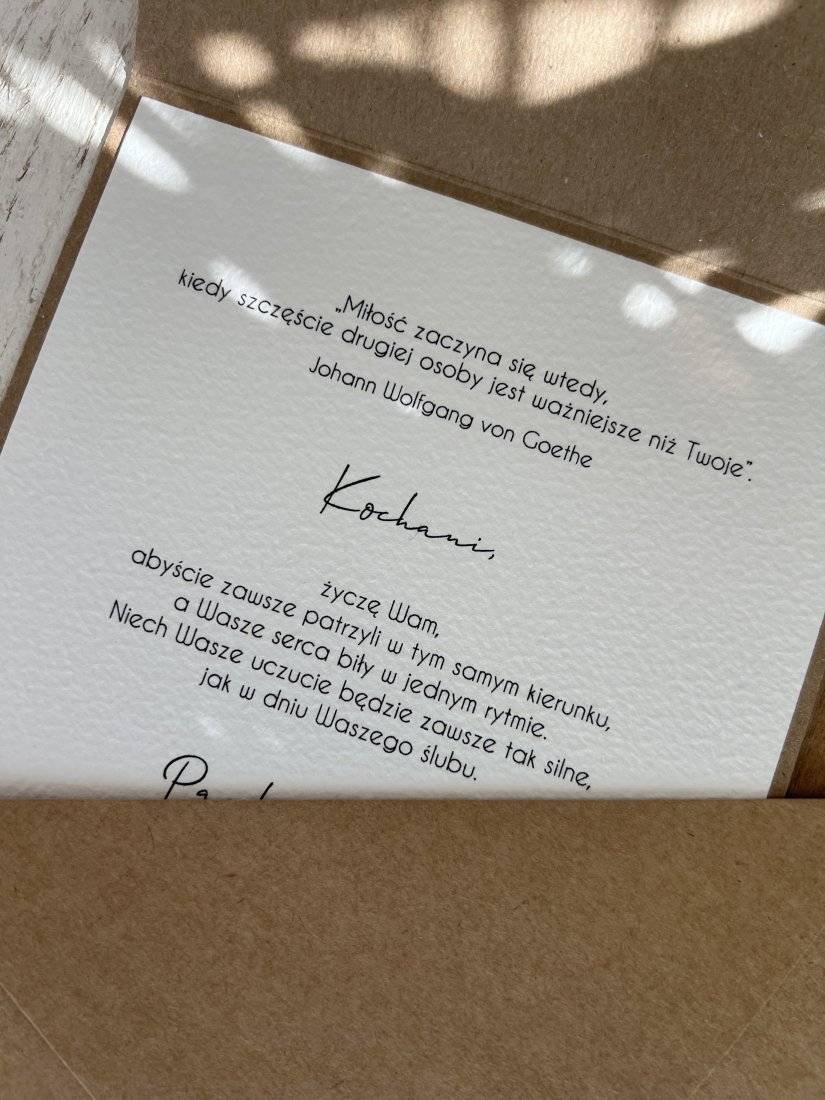 „Miłość zaczyna się wtedy,
kiedy szczęście drugiej osoby jest ważniejsze niż Twoje”.
Johann Wolfgang von Goethe
Kochani,
życzę Wam,
abyście zawsze patrzyli w tym samym kierunku,
a Wasze serca biły w jednym rytmie.
Niech Wasze uczucie będzie zawsze tak silne,
jak w dniu Waszego ślubu.